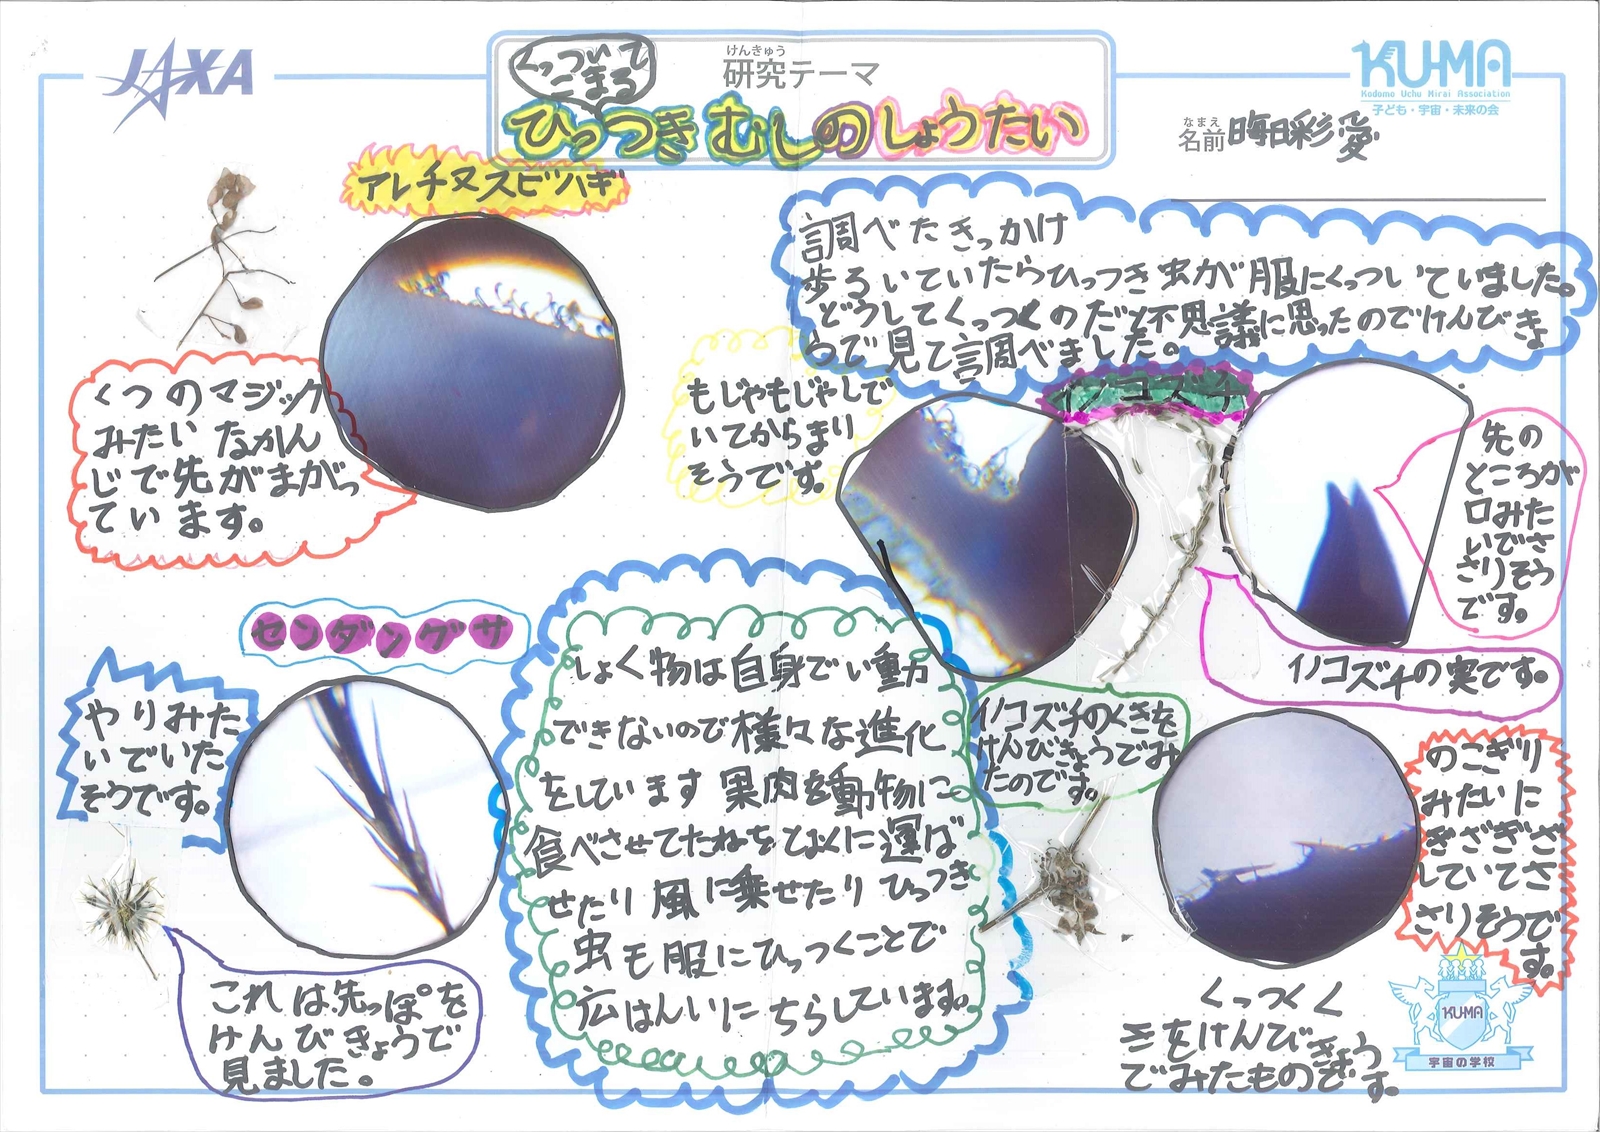 JAXA
くっついて
こまる
けんきゅう
研究テーマ
ひっつきむしのしょうたい
KU-MA
Kodomo Uchu Mirai Association
子ども・宇宙・未来の会
なまえ
名前 晦日彩愛
アレチヌスビハギ
調べたきっかけ
歩るいていたらひっつき虫が服にくっついていました。
どうしてくっつくのだと不思議に思ったのでけんびきょ
うで見て調べました。
くつのマジック
みたいなかん
じで先がまがっ
ています。
もじゃもじゃしで
いてからまり
そうです。
イノコズチ
先の
ところが
口みた
いでさ
さりそう
です。
イノコズチの実です。
センダングサ
やりみた
いでいた
そうです。
これは先っぽを
けんびきょうで
見ました。
しょく物は自身でい動
できないので様々な進化
をしています果肉を動物に
食べさせてたねをとおくに運ば
せたり風に乗せたりひっつき
虫も服にひっつくことで
広はんいにちらしています。
イノコズチのくきを
けんびきょうでみ
たのです。
のこぎり
みたいに
ぎざぎざ
していてさ
さりそうで
す。
くっつくく
きをけんびきょう
でみたものです。
KU-MA
宇宙の学校